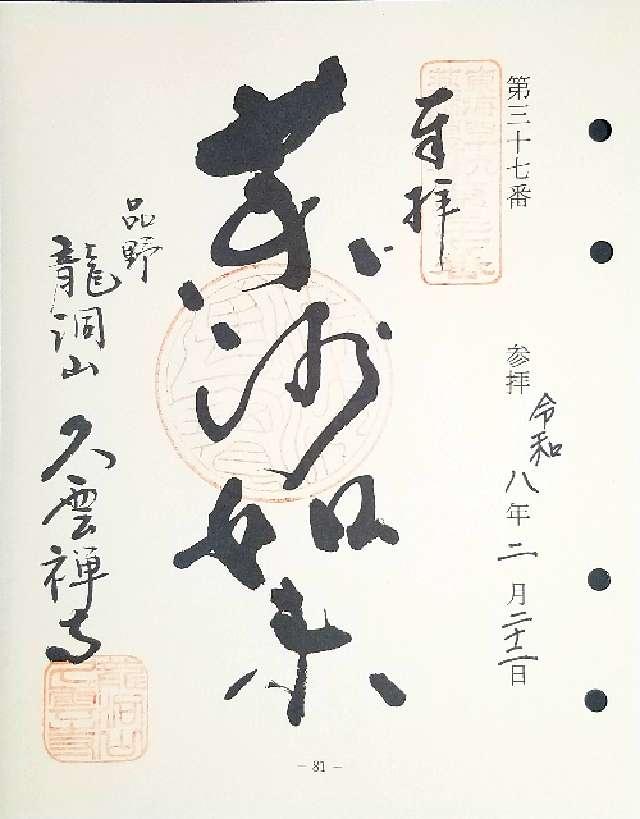 第三十七番
参拝 令和八年二月二十二日
奉拝
薬師如来
品野
龍洞山 久雲禅寺
龍洞山
久雲寺
- 81 -